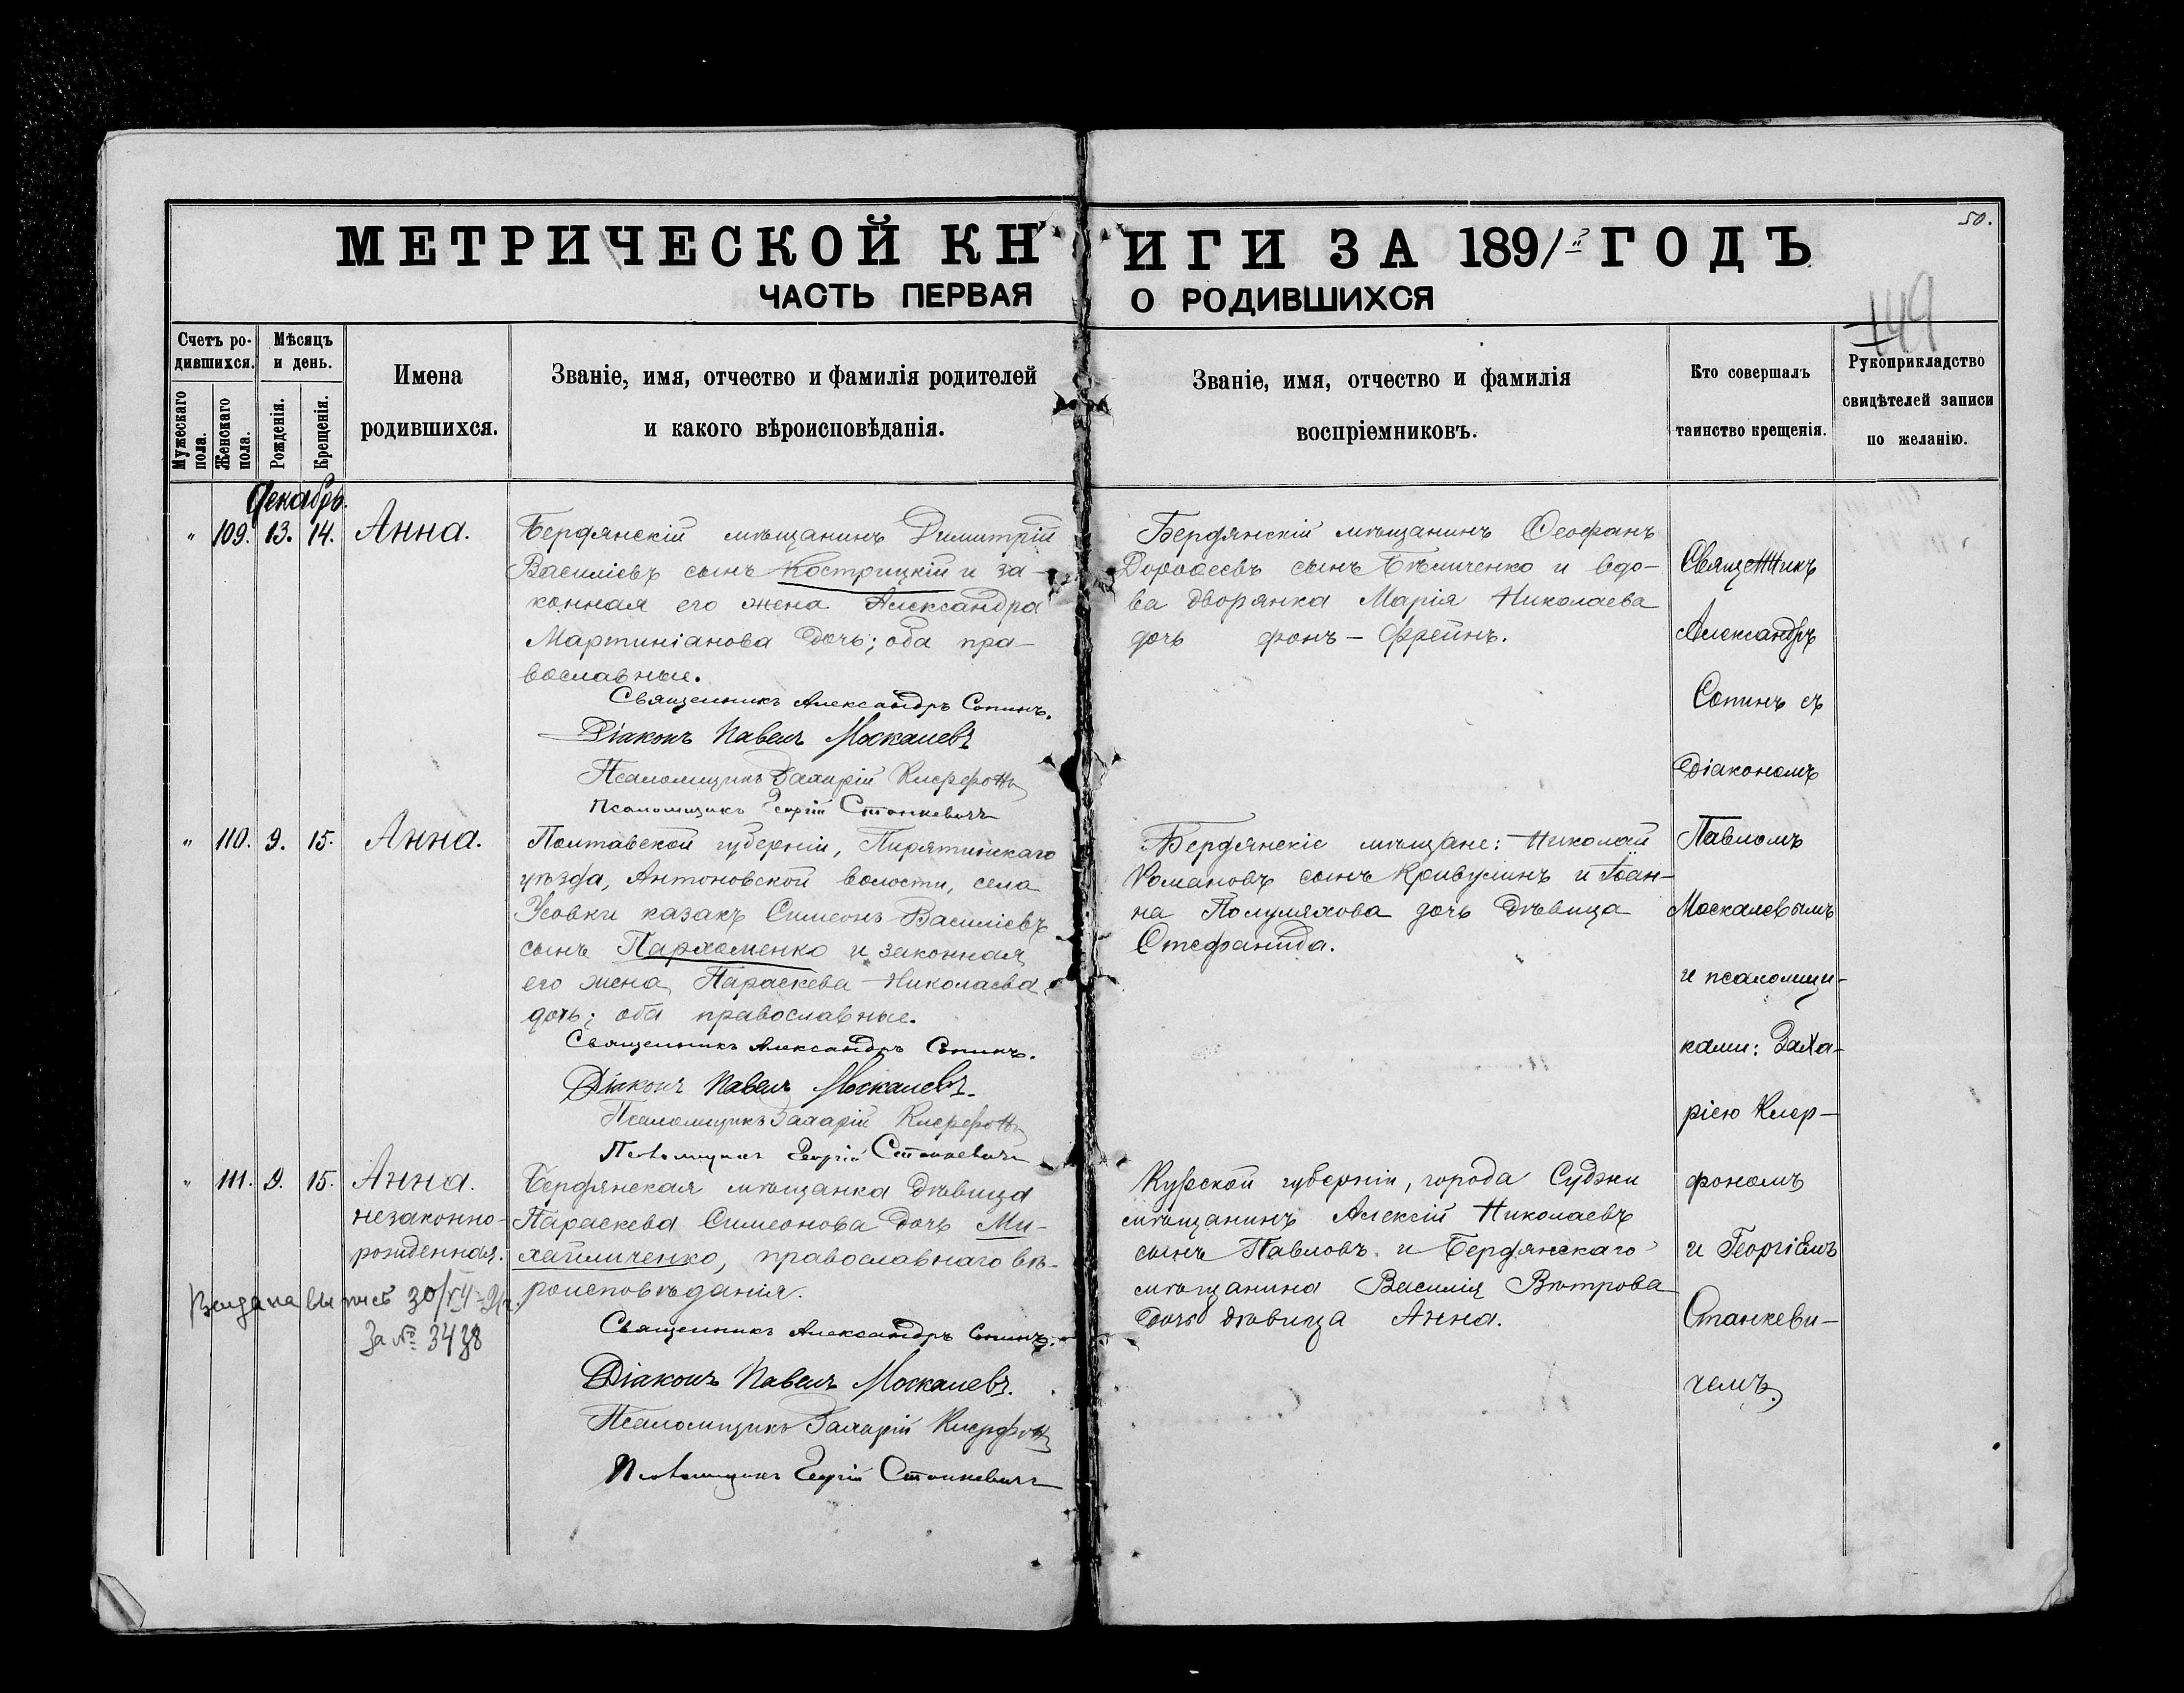 50.
МЕТРИЧЕСКОЙ КНИГИ ЗА 1891й ГОДЪ
ЧАСТЬ ПЕРВАЯ О РОДИВШИХСЯ
149
Счетъ родившихся.
Мужескаго пола.
Женскаго пола.
Мѣсяцъ и день.
Рожденія.
Крещенія.
Имена
родившихся.
Званіе, имя, отчество и фамилія родителей
и какого вѣроисповѣданія.
Званіе, имя, отчество и фамилія
воспріемниковъ.
Кто совершалъ
таинство крещенія.
Рукоприкладство
свидѣтелей записи
по желанію.
Декабрь.
" 109. 13. 14. Анна.
Бердянскій мѣщанинъ Димитрій
Василіевъ сынъ Кострицкій и за-
конная его жена Александра
Мартиніанова дочь; оба пра-
вославные.
Священникъ Александръ Сопинъ.
Діаконъ Павелъ Москалевъ
Псаломщикъ Захарій Клерфонъ
Псаломщикъ Георгій Станкевичъ
Бердянскій мѣщанинъ Ѳеофанъ
Дороѳеевъ сынъ Бѣличенко и вдо-
ва дворянка Марія Николаева
дочь фонъ-Фрейнъ.
" 110. 9. 15. Анна.
Полтавской губерніи, Пирятинскаго
уѣзда, Антоновской волости, села
Усовки казакъ Симеонъ Василіевъ
сынъ Пархоменко и законная
его жена Параскева Николаева
дочь; оба православные.
Священникъ Александръ Сопинъ.
Діаконъ Павелъ Москалевъ.
Псаломщикъ Захарій Клерфонъ
Псаломщикъ Георгій Станкевичъ
Бердянскіе мѣщане: Николай
Романовъ сынъ Кривулинъ и Іоан-
на Полуляхова дочь дѣвица
Стефанида.
" 111. 9. 15. Анна.
незаконно-
рожденная.
Выдана выпись
За № 3438
Бердянская мѣщанка дѣвица
Параскева Симеонова дочь Ми-
хайличенко, православнаго вѣ-
роисповѣданія.
Священникъ Александръ Сопинъ.
Діаконъ Павелъ Москалевъ.
Псаломщикъ Захарій Клерфонъ
Псаломщикъ Георгій Станкевичъ
Курской губерніи, города Суджи
мѣщанинъ Алексій Николаевъ
сынъ Павловъ и Бердянскаго
мѣщанина Василія Вѣтрова
дочь дѣвица Анна.
Священникъ
Александръ
Сопинъ съ
діакономъ
Павломъ
Москалевымъ
и псаломщи-
ками: Заха-
ріею Клер-
фономъ
и Георгіемъ
Станкеви-
чемъ.